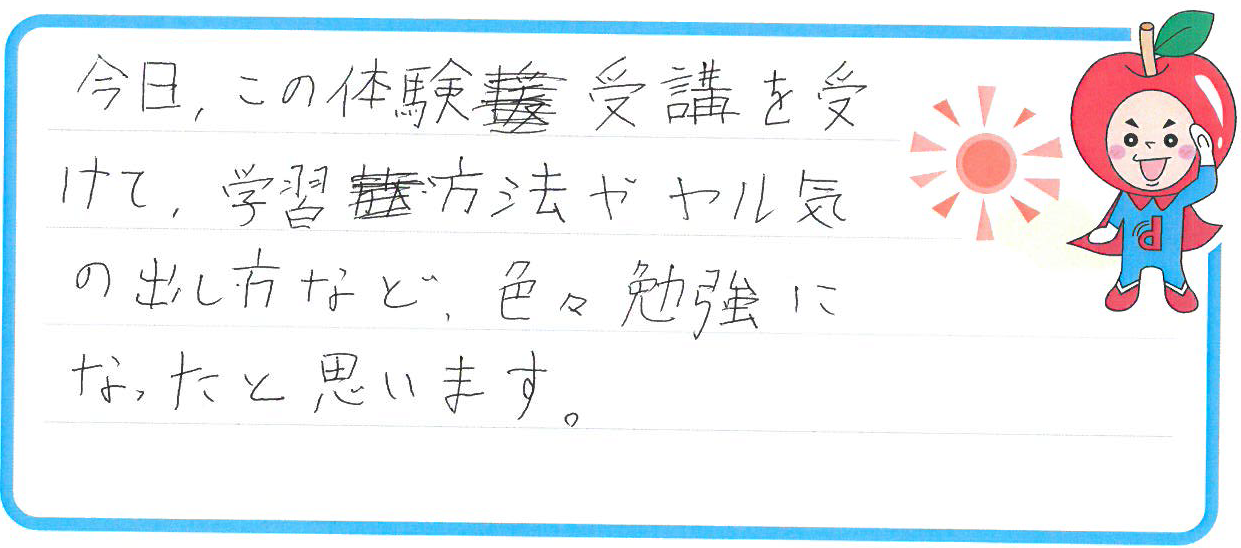 今日,この体験受講を受
けて,学習方法ややル気
の出し方など,色々勉強に
なったと思います。
P